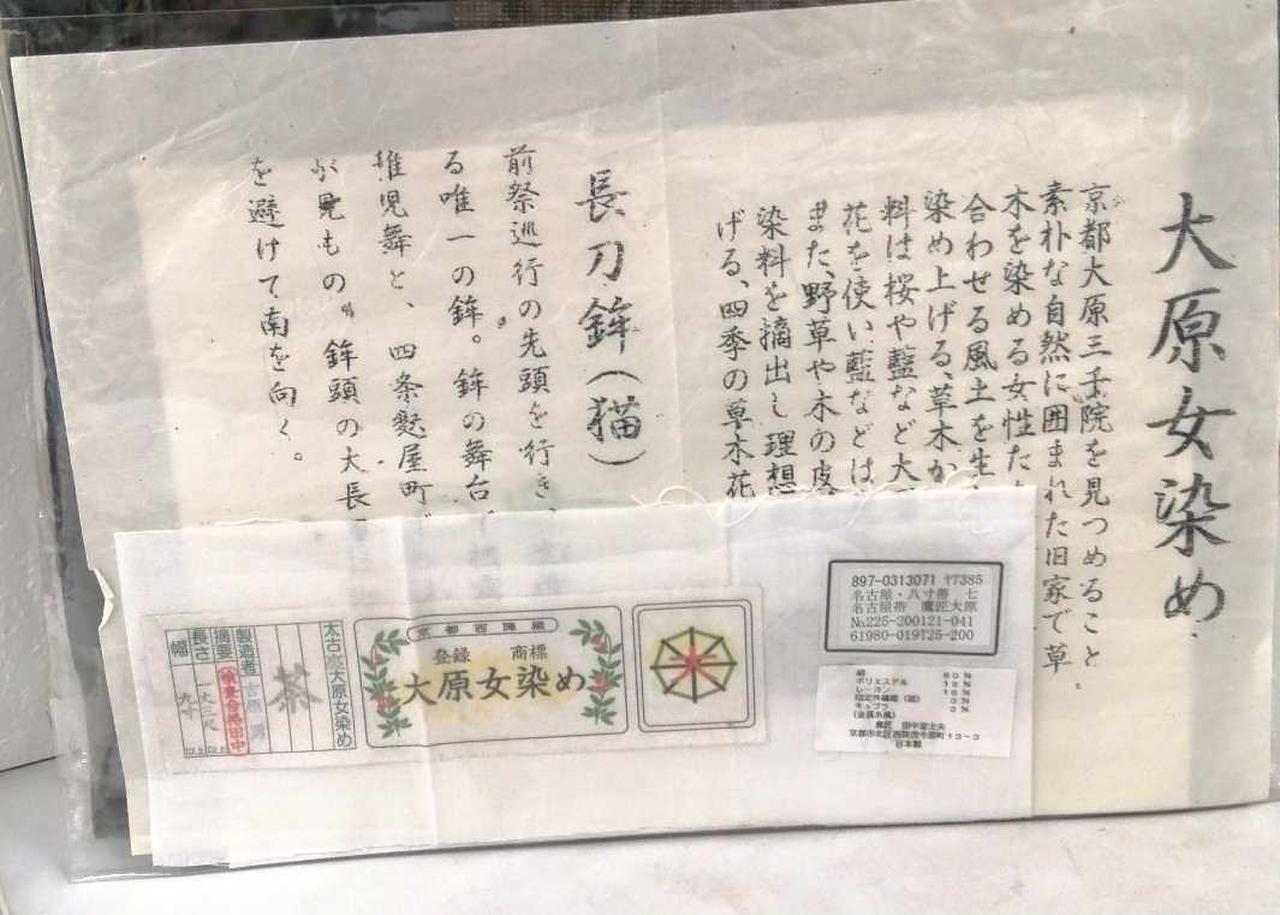 大原女染め
京都大原三千院を見つめること
素朴な自然に囲まれた旧家で草
木を染める女性た
合わせる風土を生
染め上げる、草木か
料は桜や藍など大
花を使い藍などは
また、野草や木の皮
染料を摘出し理想
げる、四季の草木花
長刀鉾(猫)
前祭巡行の先頭を行き、
る唯一の鉾。鉾の舞台
稚児舞と、四条麩屋町
が見もの。鉾頭の大長
を避けて南を向く。
太古大原女染め
茶
製造者 吉原 勇
摘要 検査合格田中
長さ 一丈二尺 以上
幅 九寸 以上
京都西陣織
登録 商標
大原女染め
897-0313071 〒7385
名古屋・八寸帯 七
名古屋帯 鷹匠大原
№225-200121-041
61980-019T25-200
絹 60%
ポリエステル
レーヨン
指定外繊維(紙)
キュプラ
(金属糸風)
鷹匠 田中富士夫
日本製